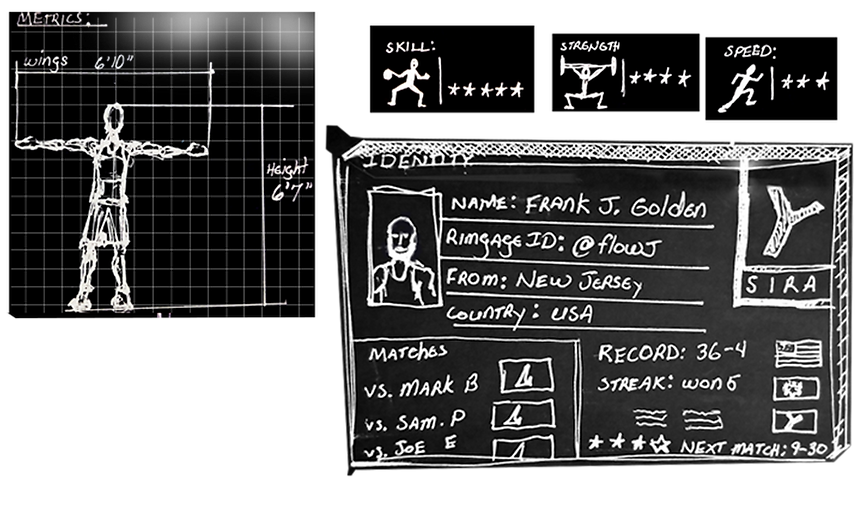 METRICS:
wings 6'10"
Height
6'7"
SKILL:
STRENGTH
SPEED:
IDENTITY
NAME: FRANK J. Golden
RIMGAGE ID: @flowJ
FROM: NEW JERSEY
COUNTRY: USA
SIRA
MATCHES
VS. MARK B
VS. SAM. P
VS. JOE E
RECORD: 36-4
STREAK: WON 5
NEXT MATCH: 9-30